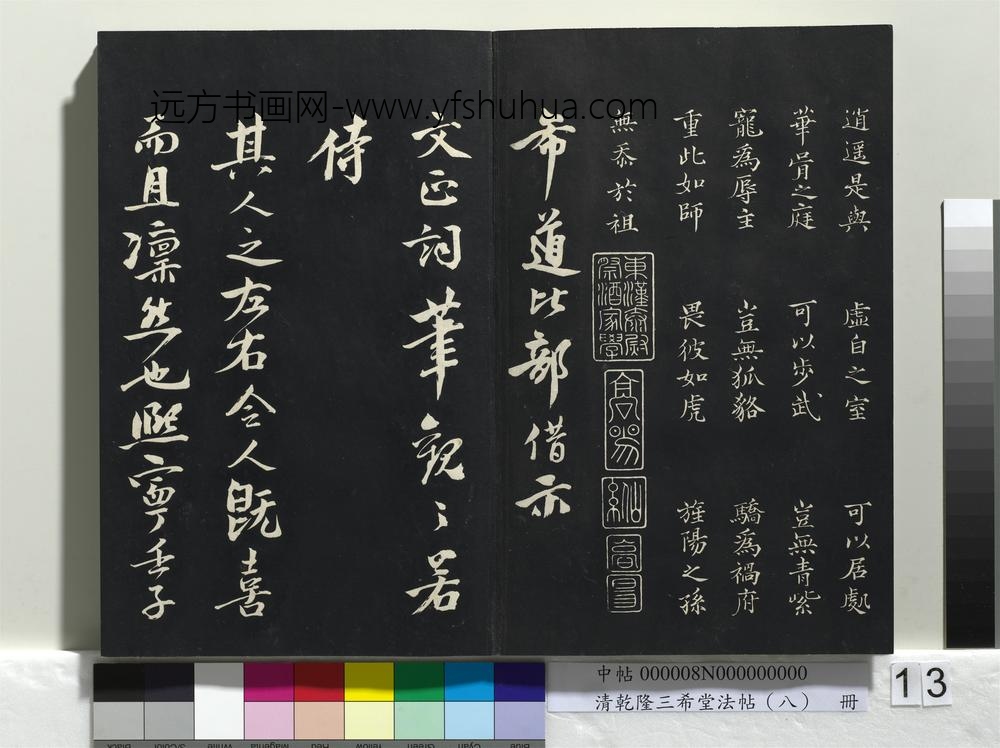 远方书画网-www.yfshuhua.com
逍遥是與 虛白之室 可以居處
華胥之庭 可以步武 豈無青紫
寵為辱主 豈無狐貉 驕為禍府
重此如師 畏彼如虎 旌陽之孫
無忝於祖
東漢太尉
祭酒家學
高陽
紹
高
希道比部借示
文正詞筆觀〻若
侍
其人之左右令人既喜
而且凛然也熙寧壬子
中帖 000008N000000000
清乾隆三希堂法帖（八） 冊
13
Black
3/Color
White
Magenta
Red
Yellow
Green
Cyan
Blue